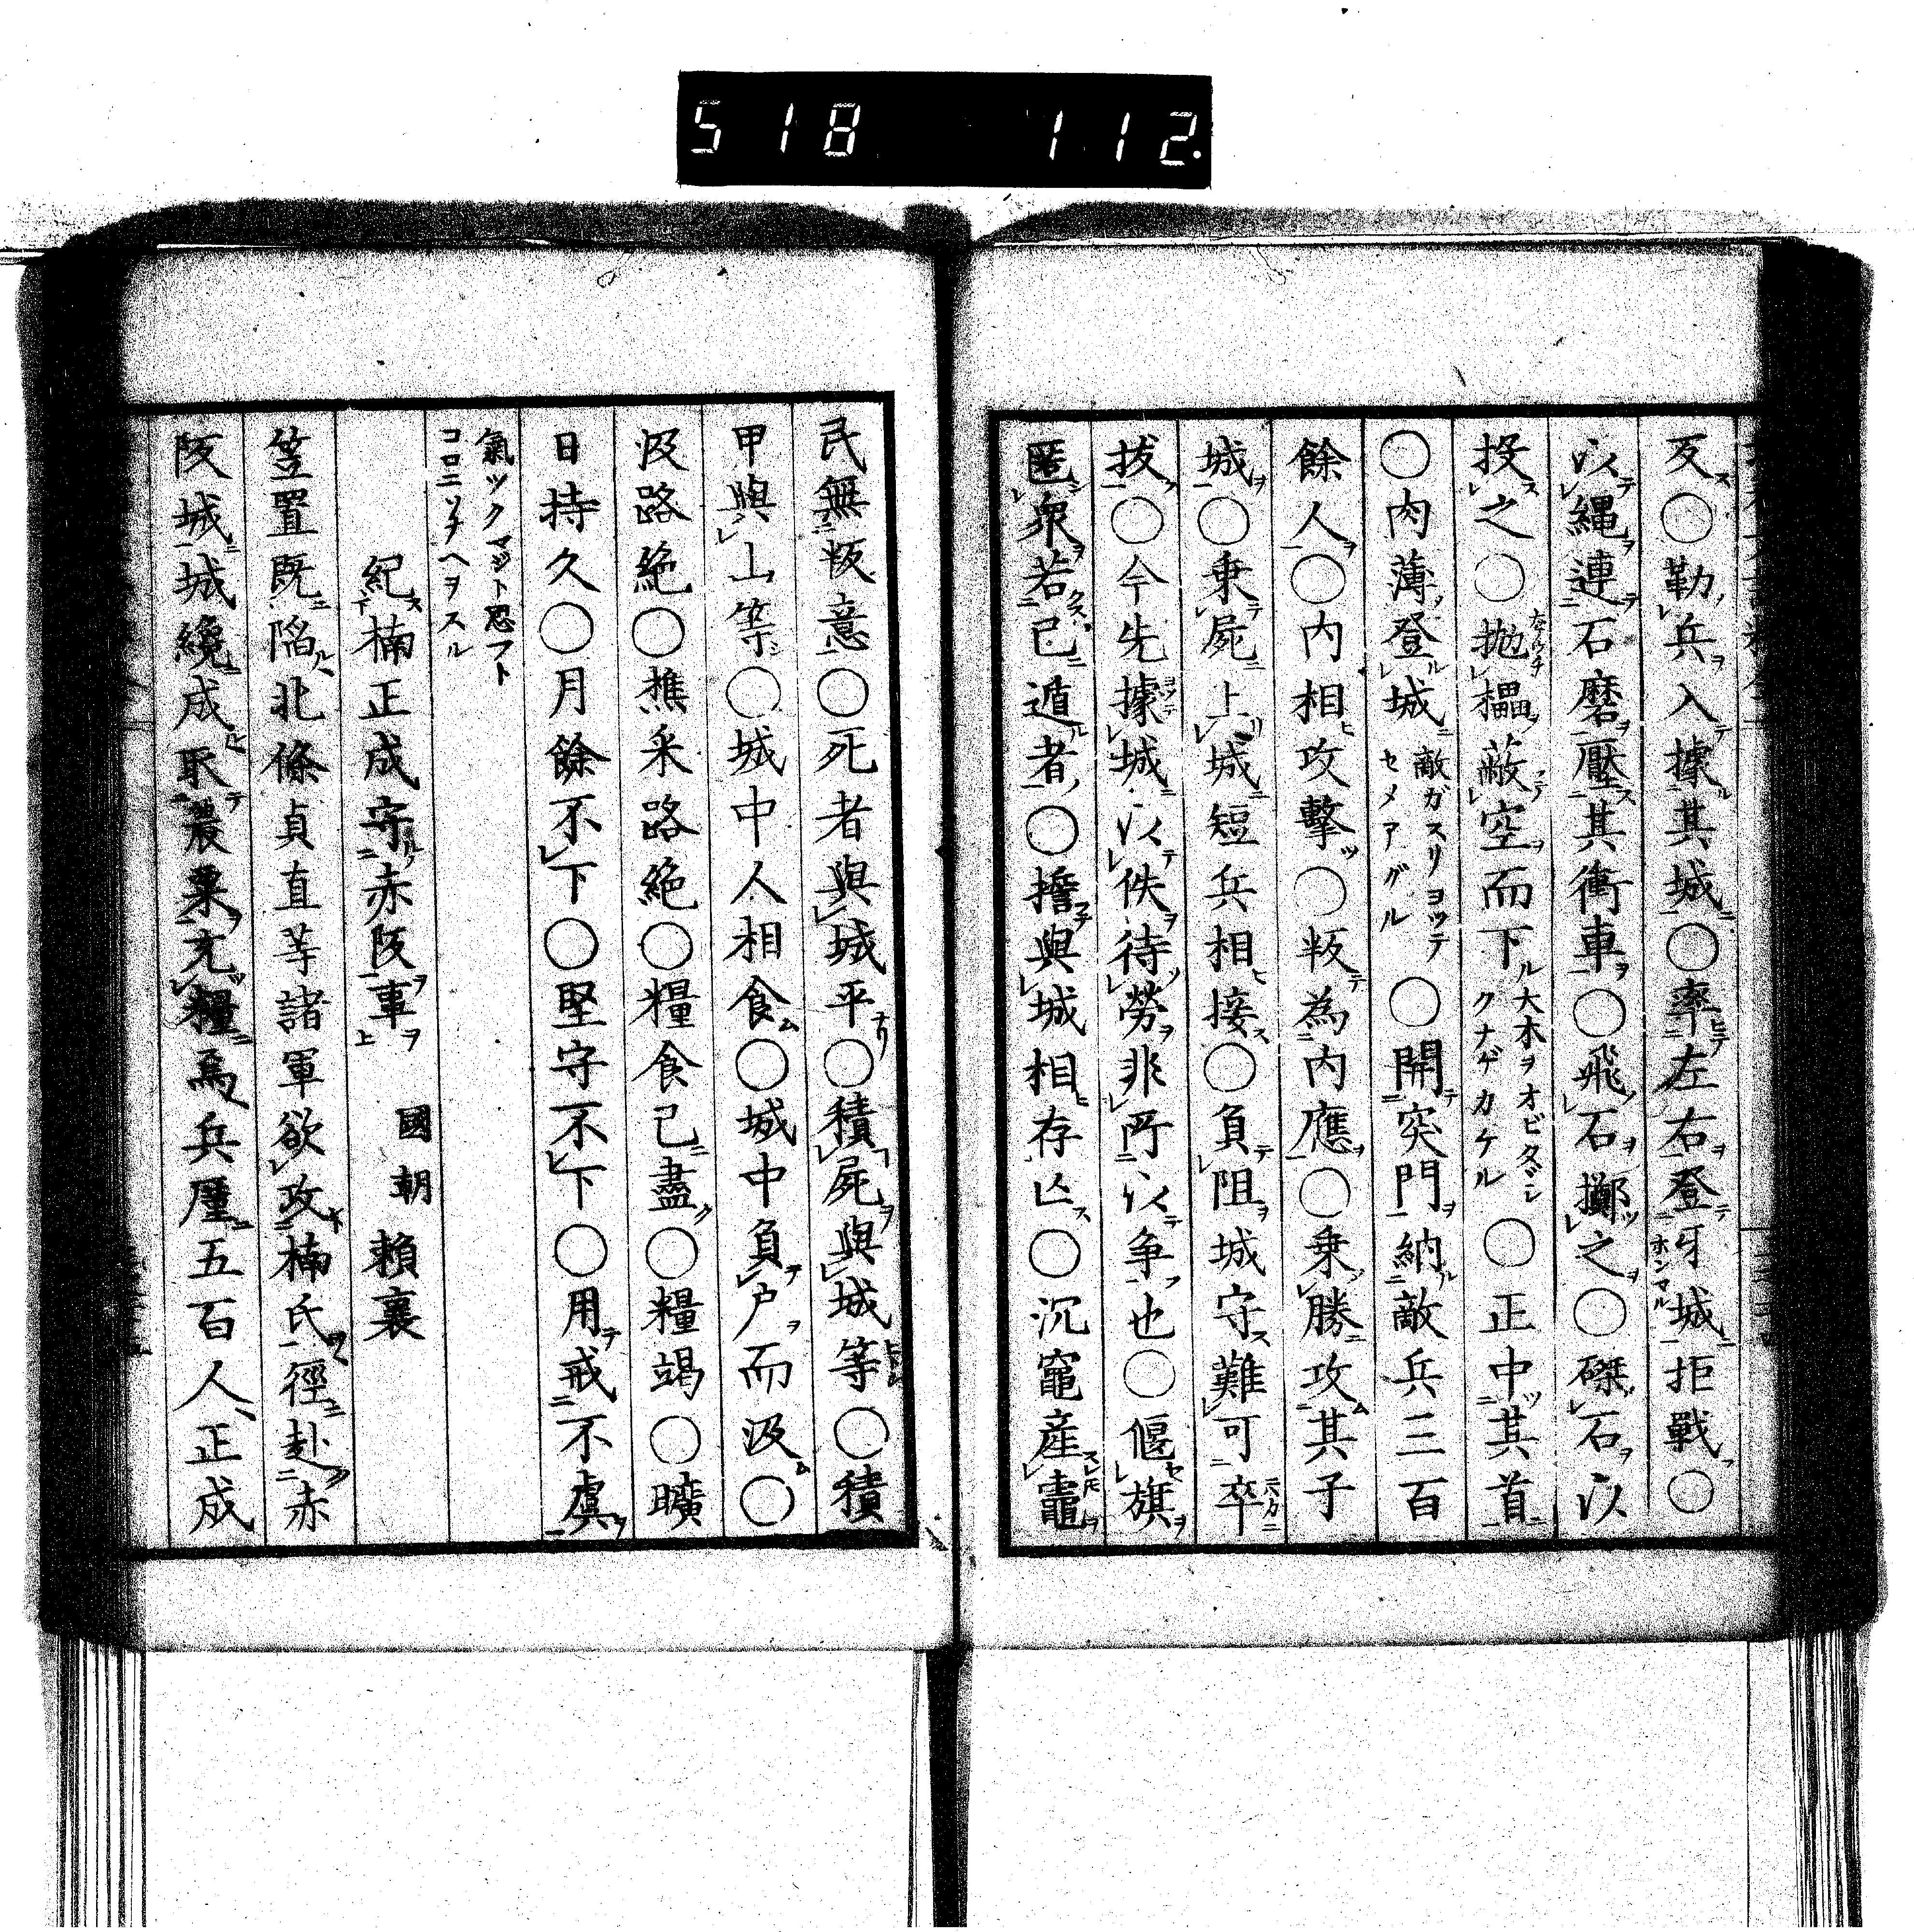 518 112.
反○勒兵入據其城○率左右登牙城拒戰○
以縄連石磨壓其衝車○飛石擲之○磔石以
投之○抛櫑蔽空而下大木ヲオビタヾシクナゲカケル○正中其首
○肉薄登城敵ガスリヨッテセメアグル○開突門納敵兵三百
餘人○内相攻擊○叛為内應○乗勝攻其子
城○乗屍上城短兵相接○負阻城守難可卒
拔○今先據城以佚待勞非所以争也○偃旗
匿衆若已遁者○擔與城相存亡○沉竈産鼃
民無叛意○死者與城平○積屍與城等○積
甲與山等○城中人相食○城中負户而汲○
汲路絶○樵采路絶○糧食已盡○糧竭○曠
日持久○月餘不下○堅守不下○用戒不虞
氣ツクマジト思フトコロニソナヘヲスル
紀楠正成守赤阪事 國朝 賴襄
笠置既陷北條貞直等諸軍欲攻楠氏徑赴赤
阪城城纔成取農粟充糧焉兵厪五百人正成